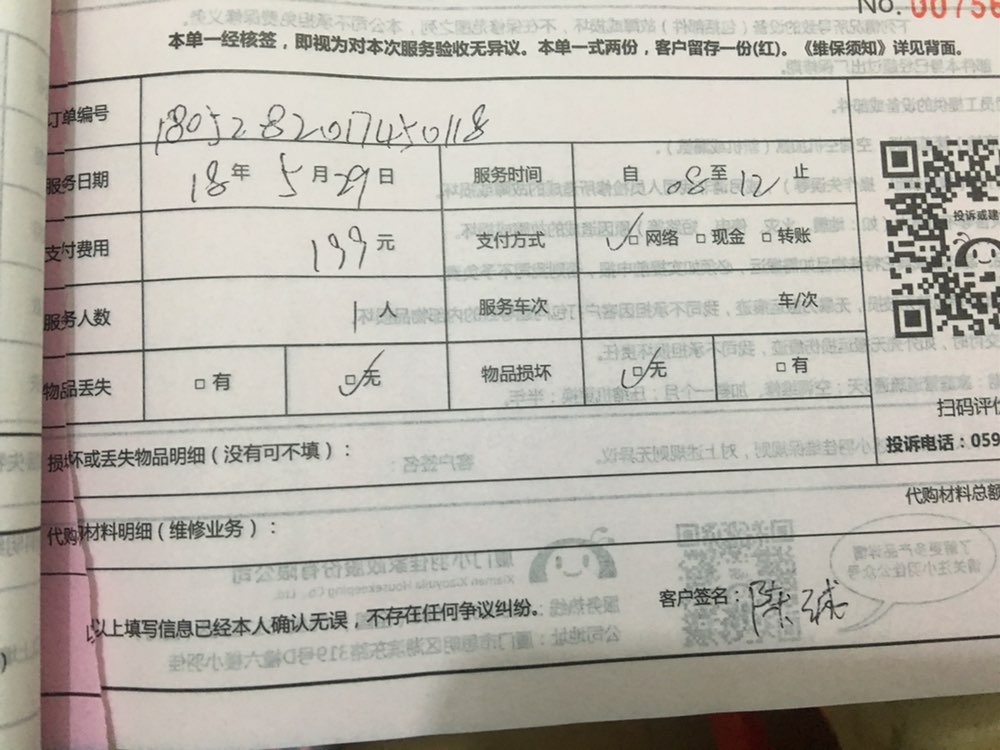 No. 00756
本单一经核签，即视为对本次服务验收无异议。本单一式两份，客户留存一份(红)。《维保须知》详见背面。
订单编号 1805282017450118
服务日期 18 年 5 月 29 日 服务时间 自 08 至 12 止
支付费用 199 元 支付方式 ☑ 网络 □ 现金 □ 转账
服务人数 1 人 服务车次 车/次
物品丢失 □ 有 ☑ 无 物品损坏 ☑ 无 □ 有
投诉或建
扫码评价
投诉电话：059
损坏或丢失物品明细（没有可不填）：
代购材料总额
代购材料明细（维修业务）：
以上填写信息已经本人确认无误，不存在任何争议纠纷。 客户签名：陈